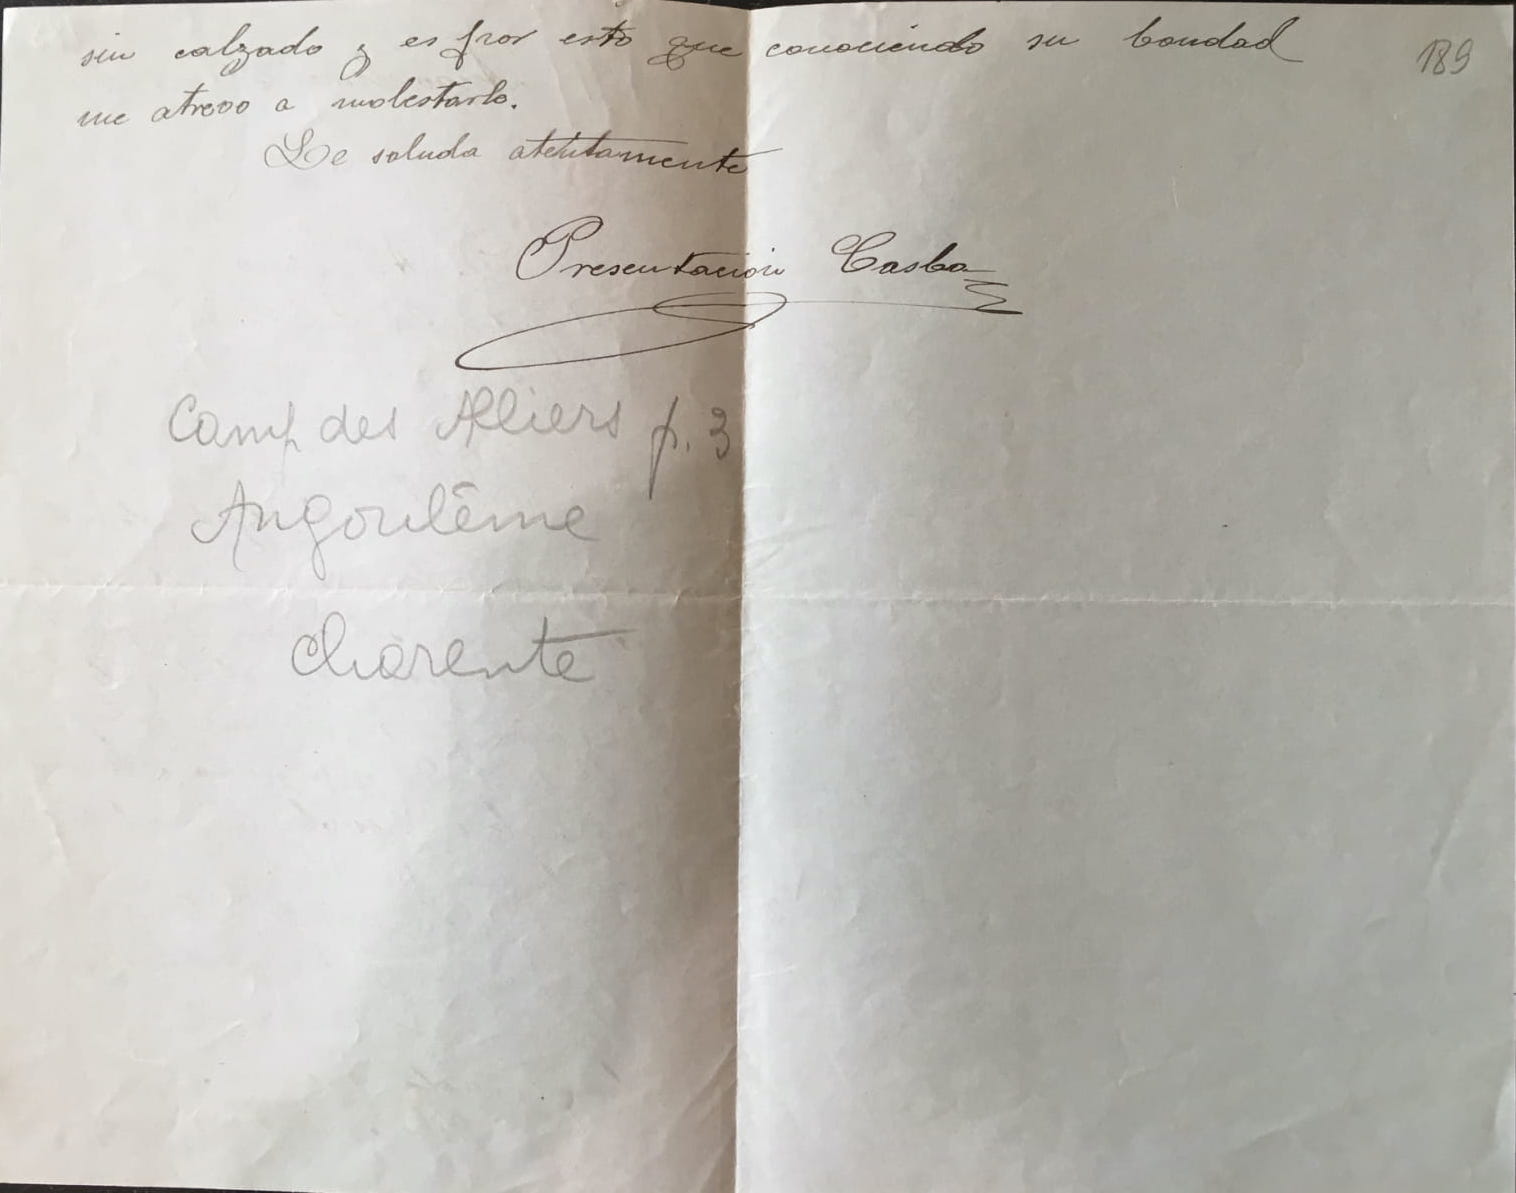 sin calzado y es por esto que conociendo su bondad
189
me atrevo a molestarlo.
Le saluda atentamente
Presentación Casba
Camp des Alliers p. 3
Angoulême
Charente